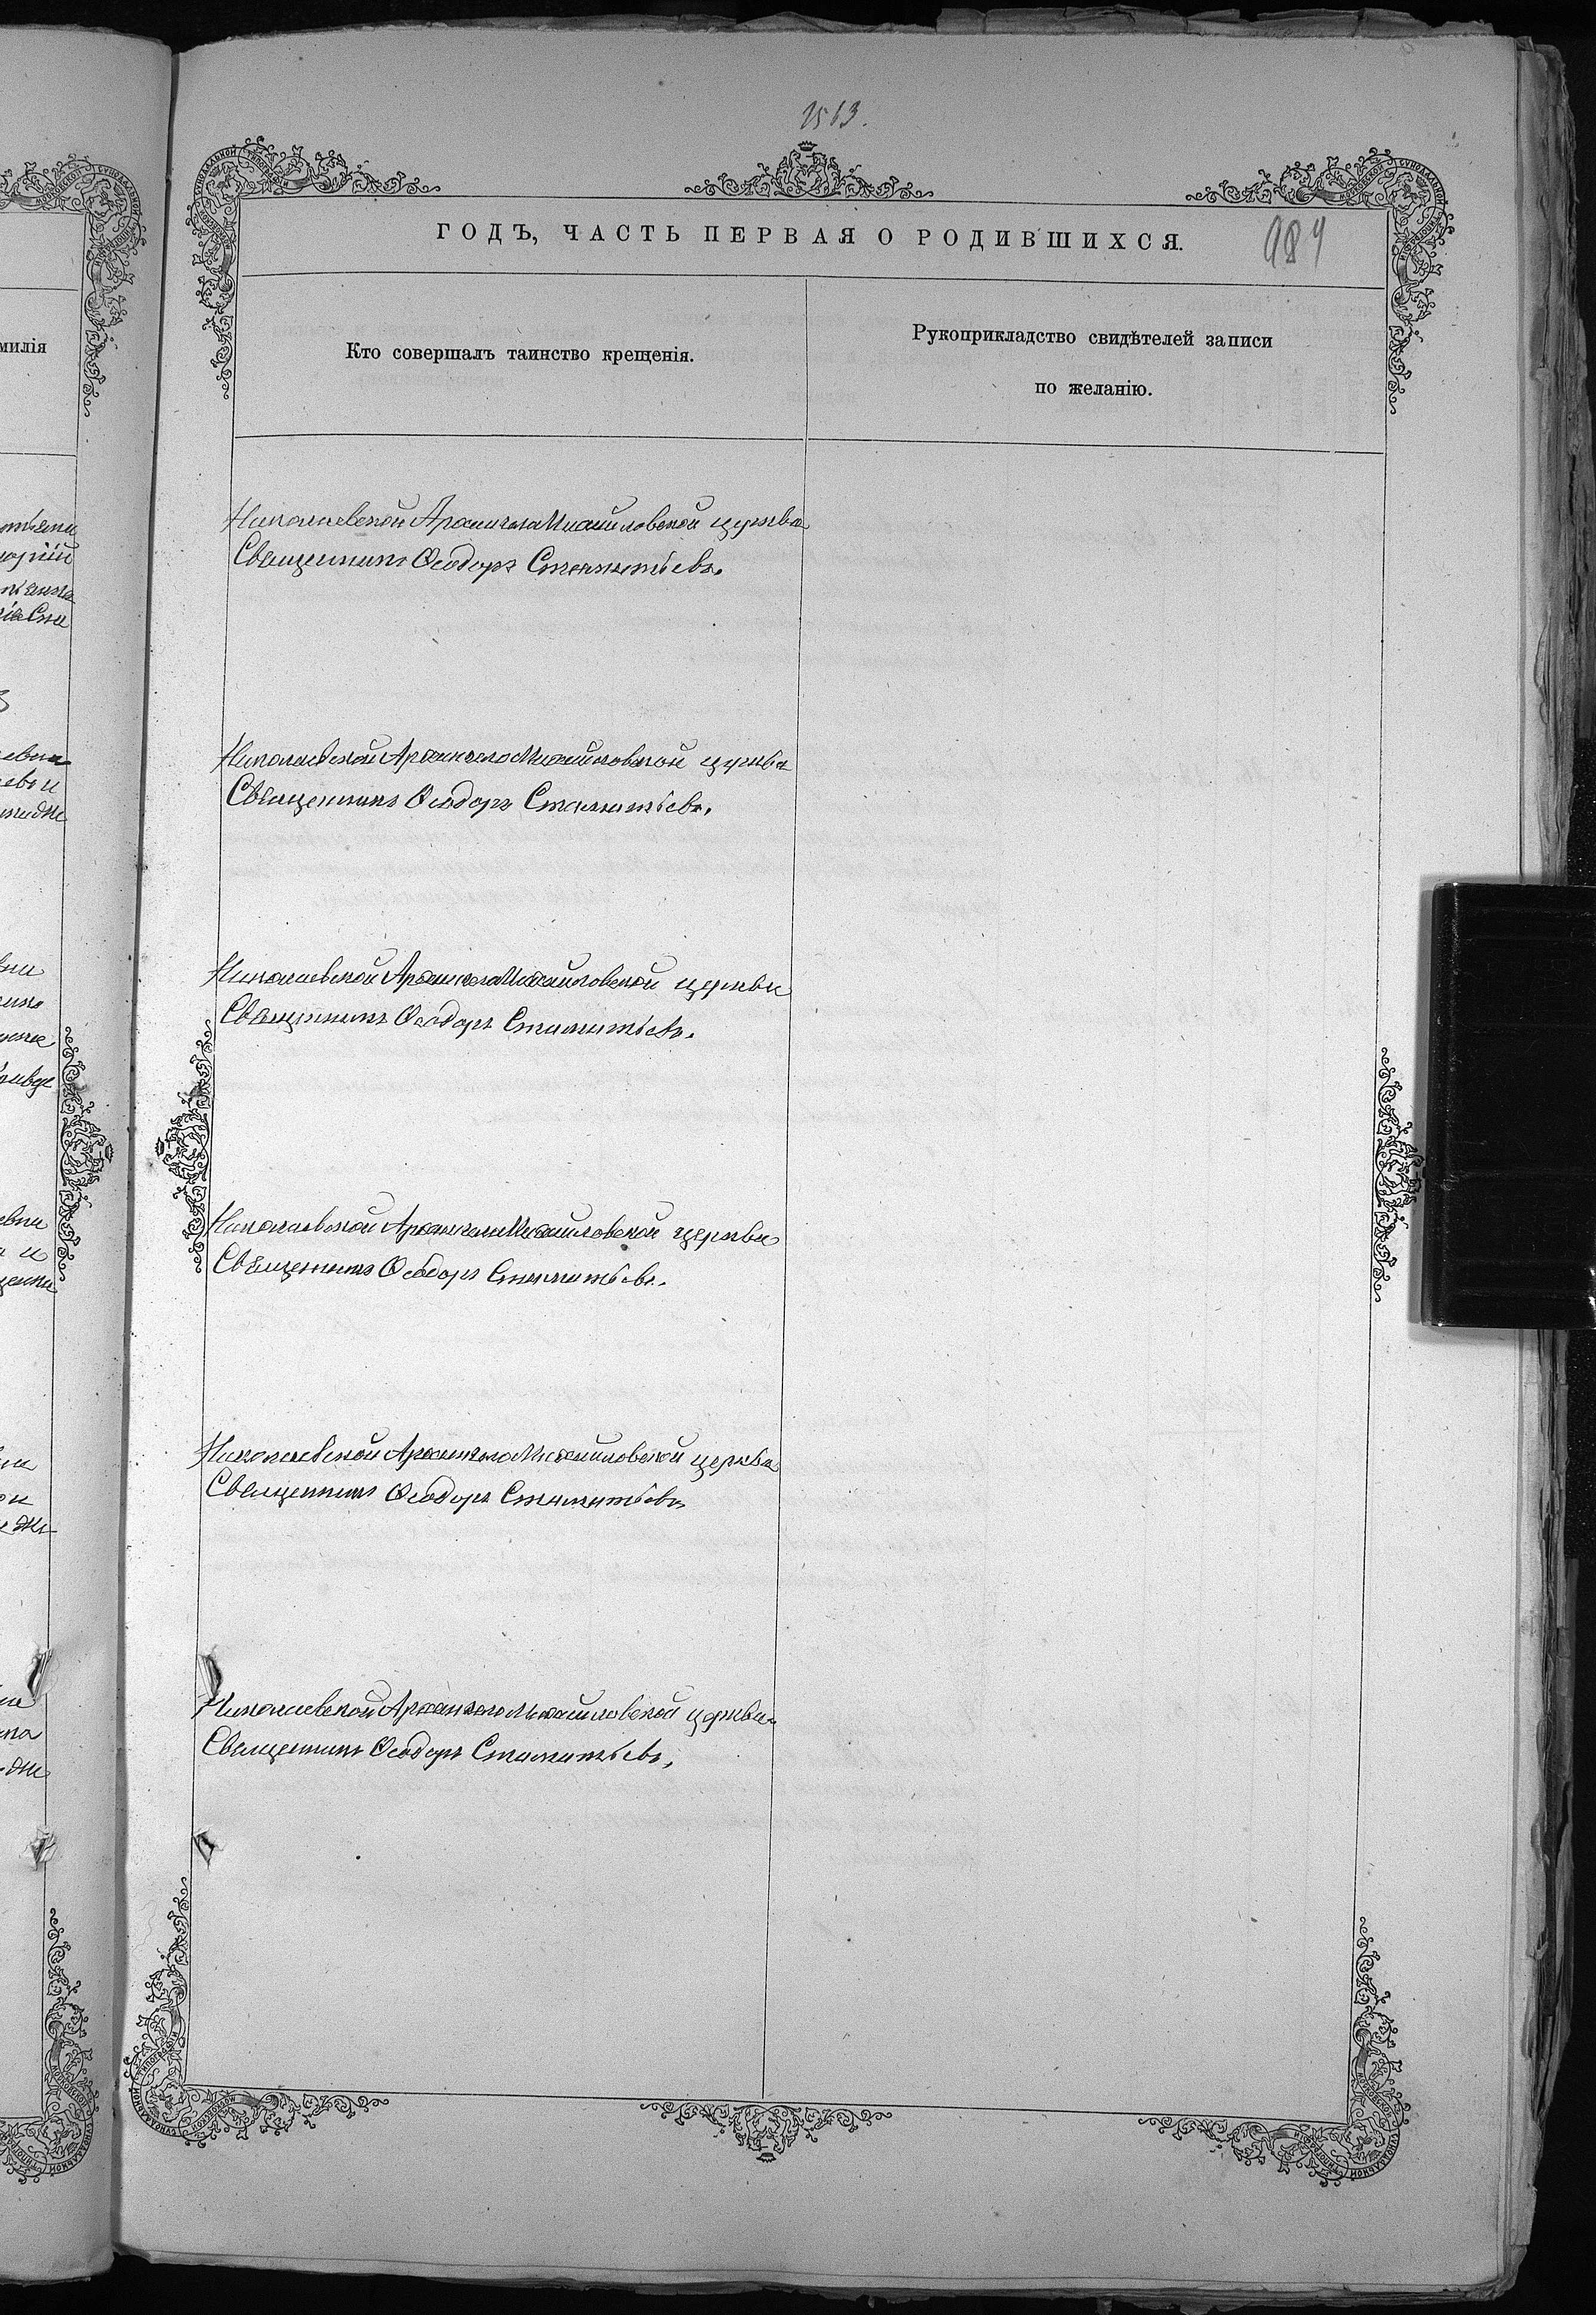 1513.
ГОДЪ, ЧАСТЬ ПЕРВАЯ О РОДИВШИХСЯ.
984
милія
Кто совершалъ таинство крещенія.
Рукоприкладство свидѣтелей записи
по желанію.
Николаевской Архангело Михайловской церкви
Священникъ Ѳеодоръ Стаматьевъ.
Николаевской Архангело Михайловской церкви
Священникъ Ѳеодоръ Стаматьевъ.
Николаевской Архангело Михайловской церкви
Священникъ Ѳеодоръ Стаматьевъ.
Николаевской Архангело Михайловской церкви
Священникъ Ѳеодоръ Стаматьевъ.
Николаевской Архангело Михайловской церкви
Священникъ Ѳеодоръ Стаматьевъ
Николаевской Архангело Михайловской церкви
Священникъ Ѳеодоръ Стаматьевъ.